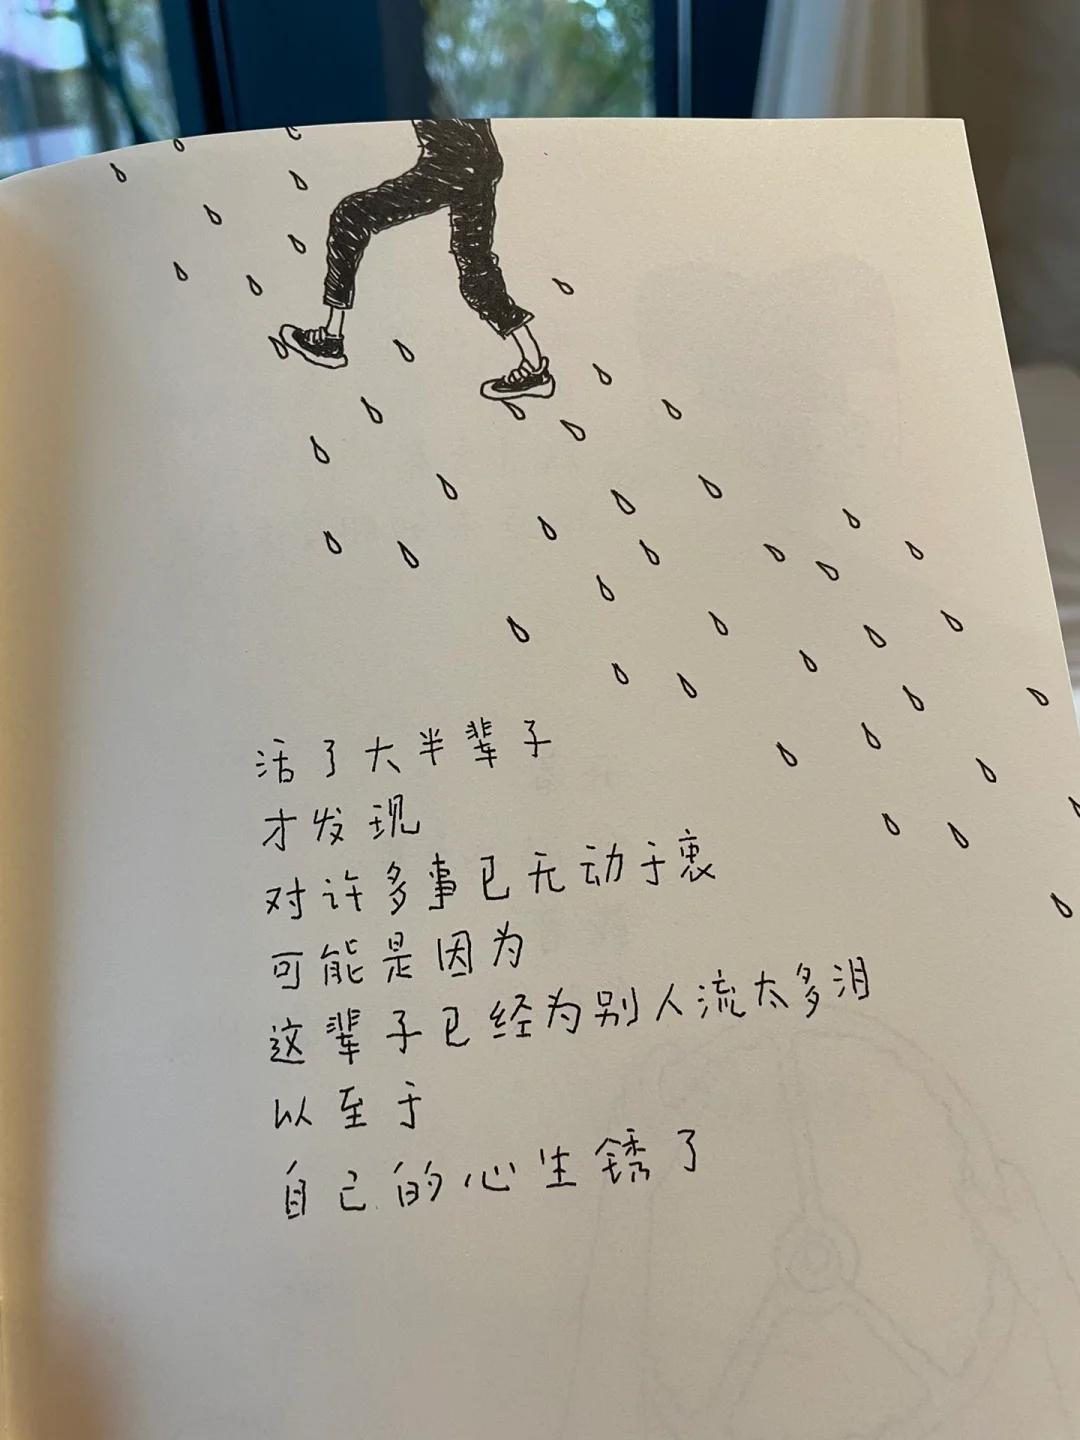 活了大半辈子
才发现
对许多事已无动于衷
可能是因为
这辈子已经为别人流太多泪
以至于
自己的心生锈了